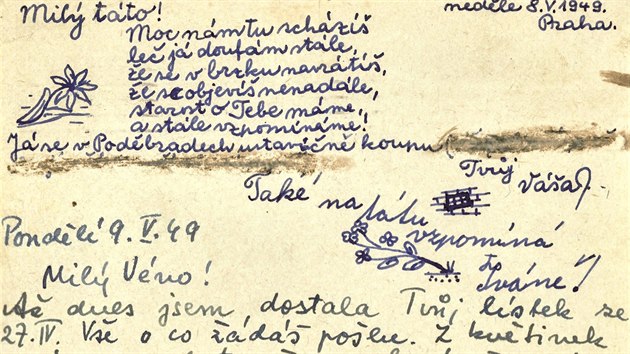 Milý táto!
neděle 8.V.1949.
Praha.
Moc nám tu scházíš
leč já doufám stále,
že se v brzku navrátíš,
že se objevíš nenadále,
starost o Tebe máme,
a stále vzpomínáme!
Já se v Poděbradech ustavičně koupu
Tvůj
Váša.
Také na tátu
vzpomíná
Iváne!
Pondělí 9. V. 49
Milý Véno!
Až dnes jsem dostala Tvůj lístek ze
27.IV. Vše o co žádáš pošlu. Z květinek